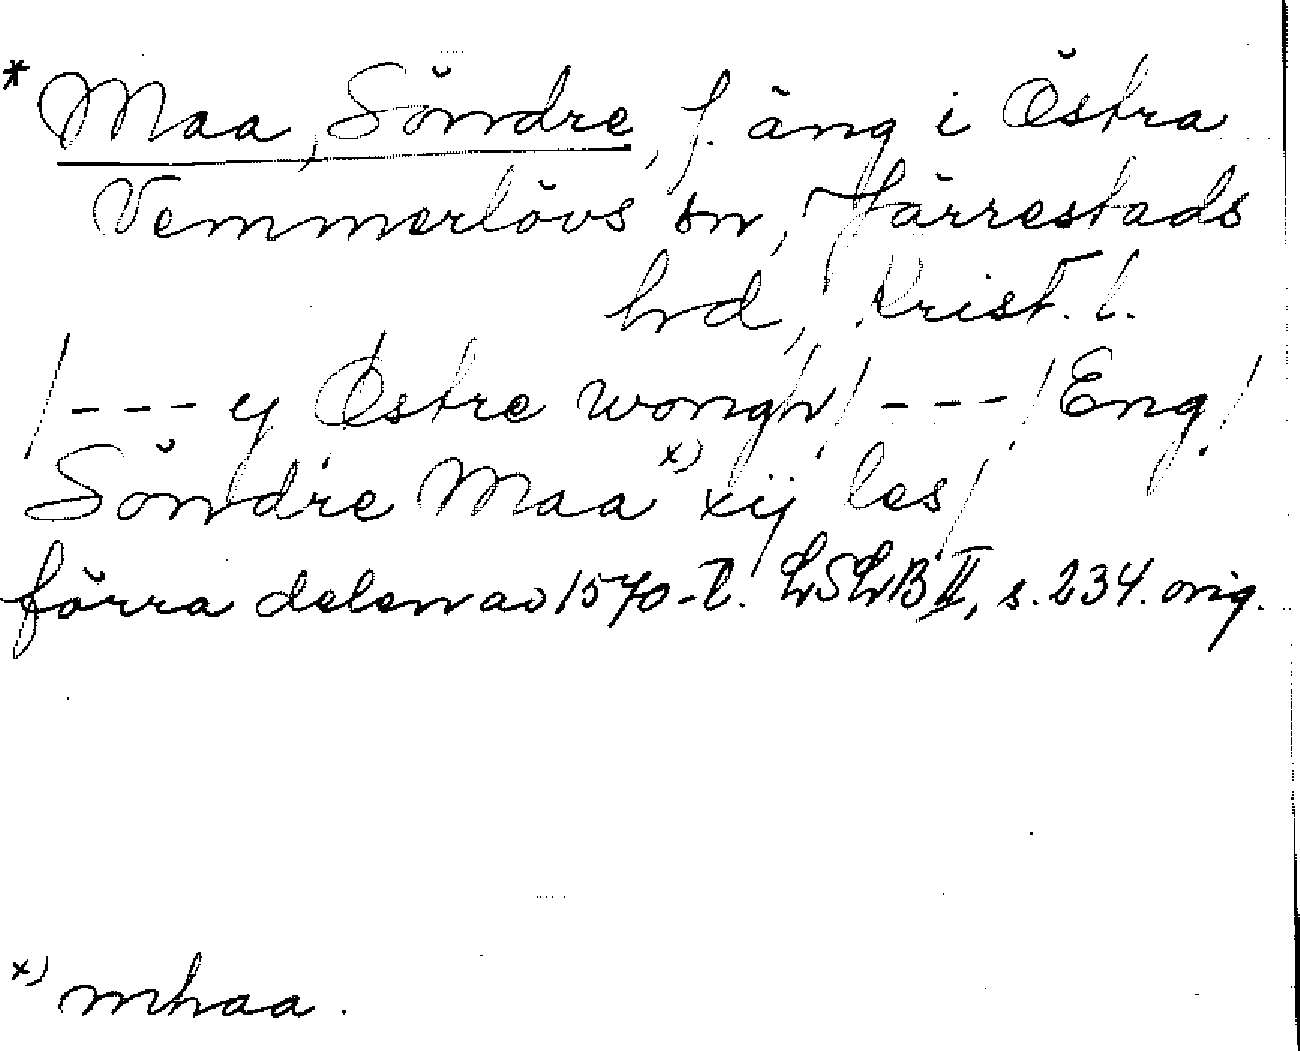 * Maa, Söndre, f. äng i Östra
Vemmerlövs sn, Järrestads
hd, Krist. l.
/--- y Østre wongh/ --- / Eng /
Söndre Maa x) xij les/
förra delen av 1570-t. LSLB II, s. 234. orig.
x) mhaa.